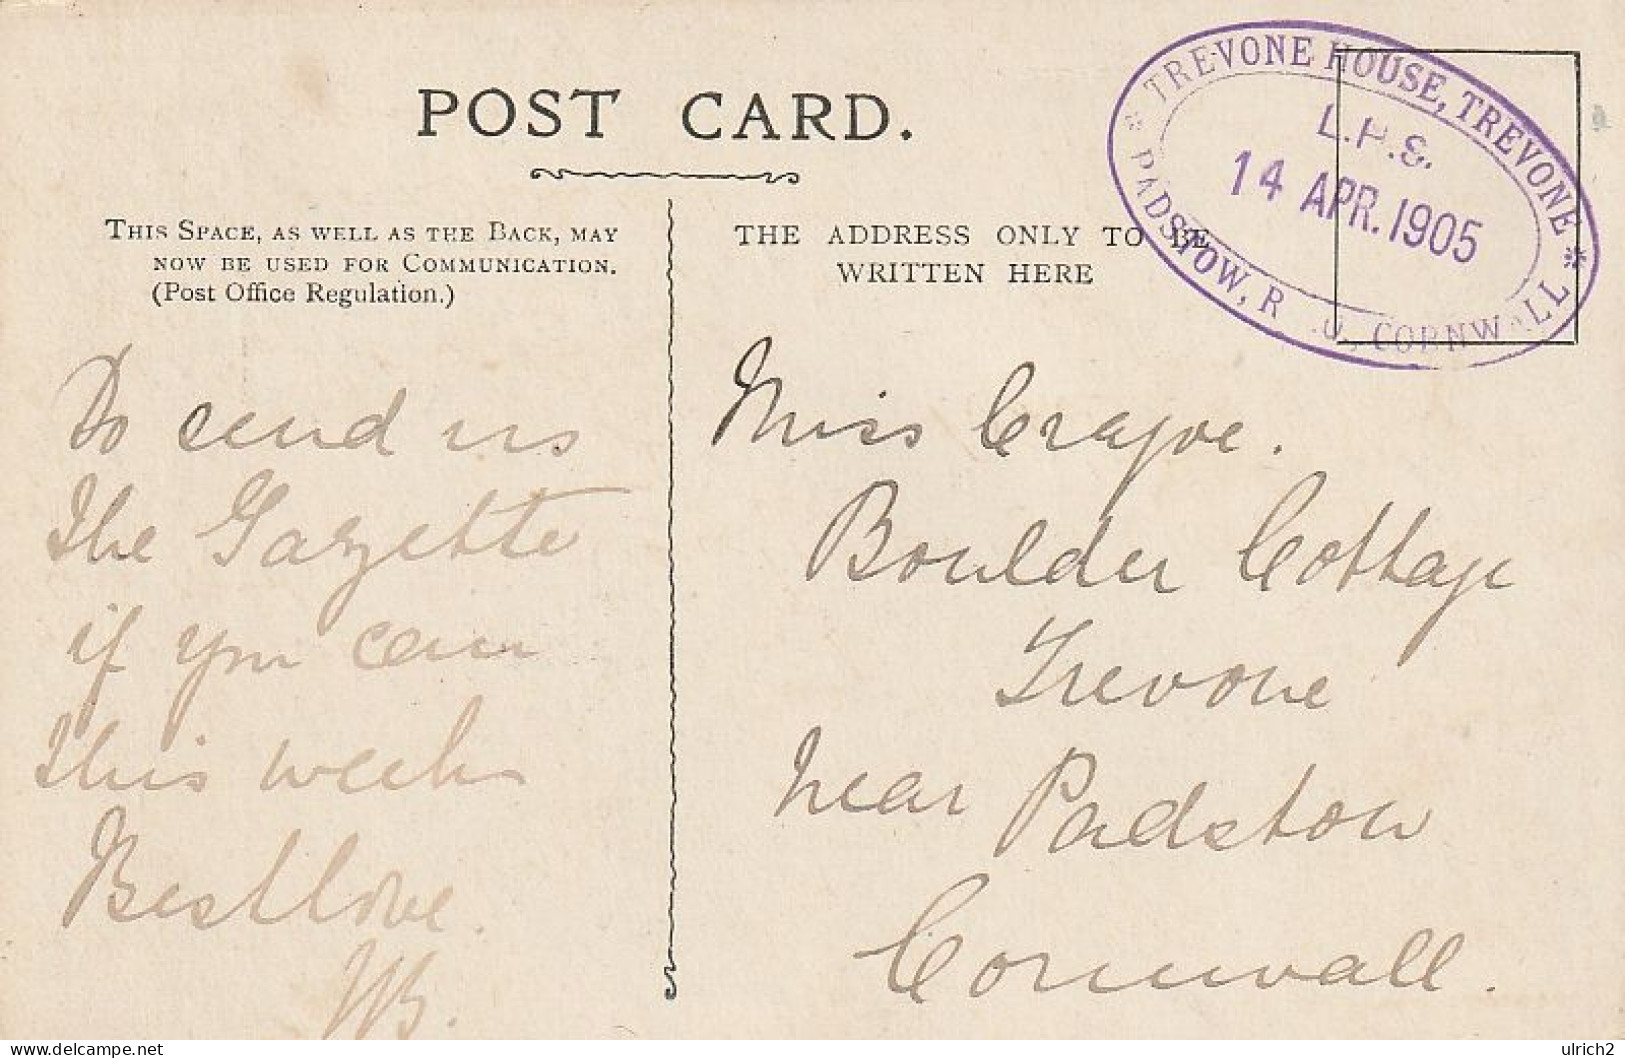 POST CARD.
THIS SPACE, AS WELL AS THE BACK, MAY
NOW BE USED FOR COMMUNICATION.
(Post Office Regulation.)
THE ADDRESS ONLY TO BE
WRITTEN HERE
* TREVONE HOUSE, TREVONE *
L.P.S.
14 APR. 1905
PADSTOW, R .O., CORNWALL
Do send us
the Gazette
if you can
this week
Best love.
Miss
Boulder Cottage
Trevone
near Padstow
Cornwall.
delcampe.net
ulrich2